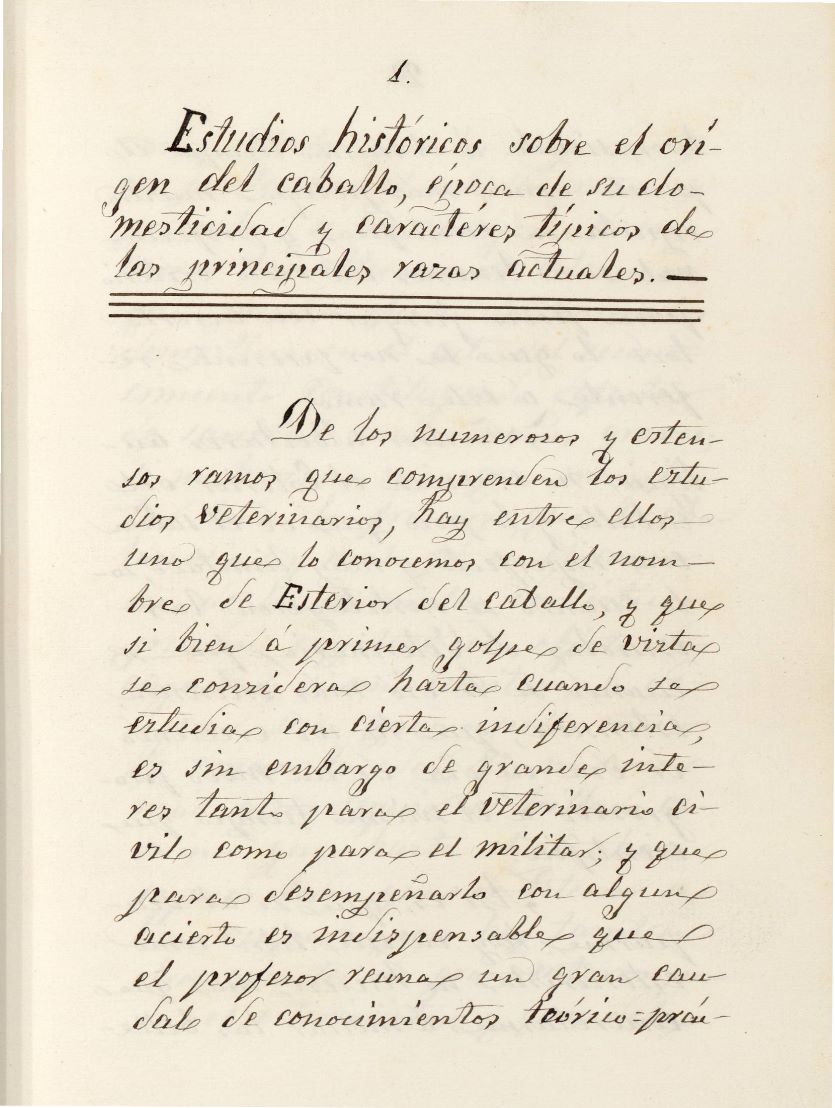 1.
Estudios históricos sobre el orí-
gen del caballo, época de su do-
mesticidad y caractéres típicos de
las principales razas actuales. —
De los numerosos y esten-
sos ramos que comprenden los estu-
dios veterinarios, hay entre ellos
uno que lo conocemos con el nom-
bre de Esterior del caballo, y que
si bien á primer golpe de vista
se considera hasta cuando se
estudia con cierta indiferencia,
es sin embargo de grande inte-
res tanto para el veterinario ci-
vil como para el militar; y que
para desempeñarlo con algun
acierto es indispensable que
el profesor reuna un gran cau-
dal de conocimientos teórico=prác-